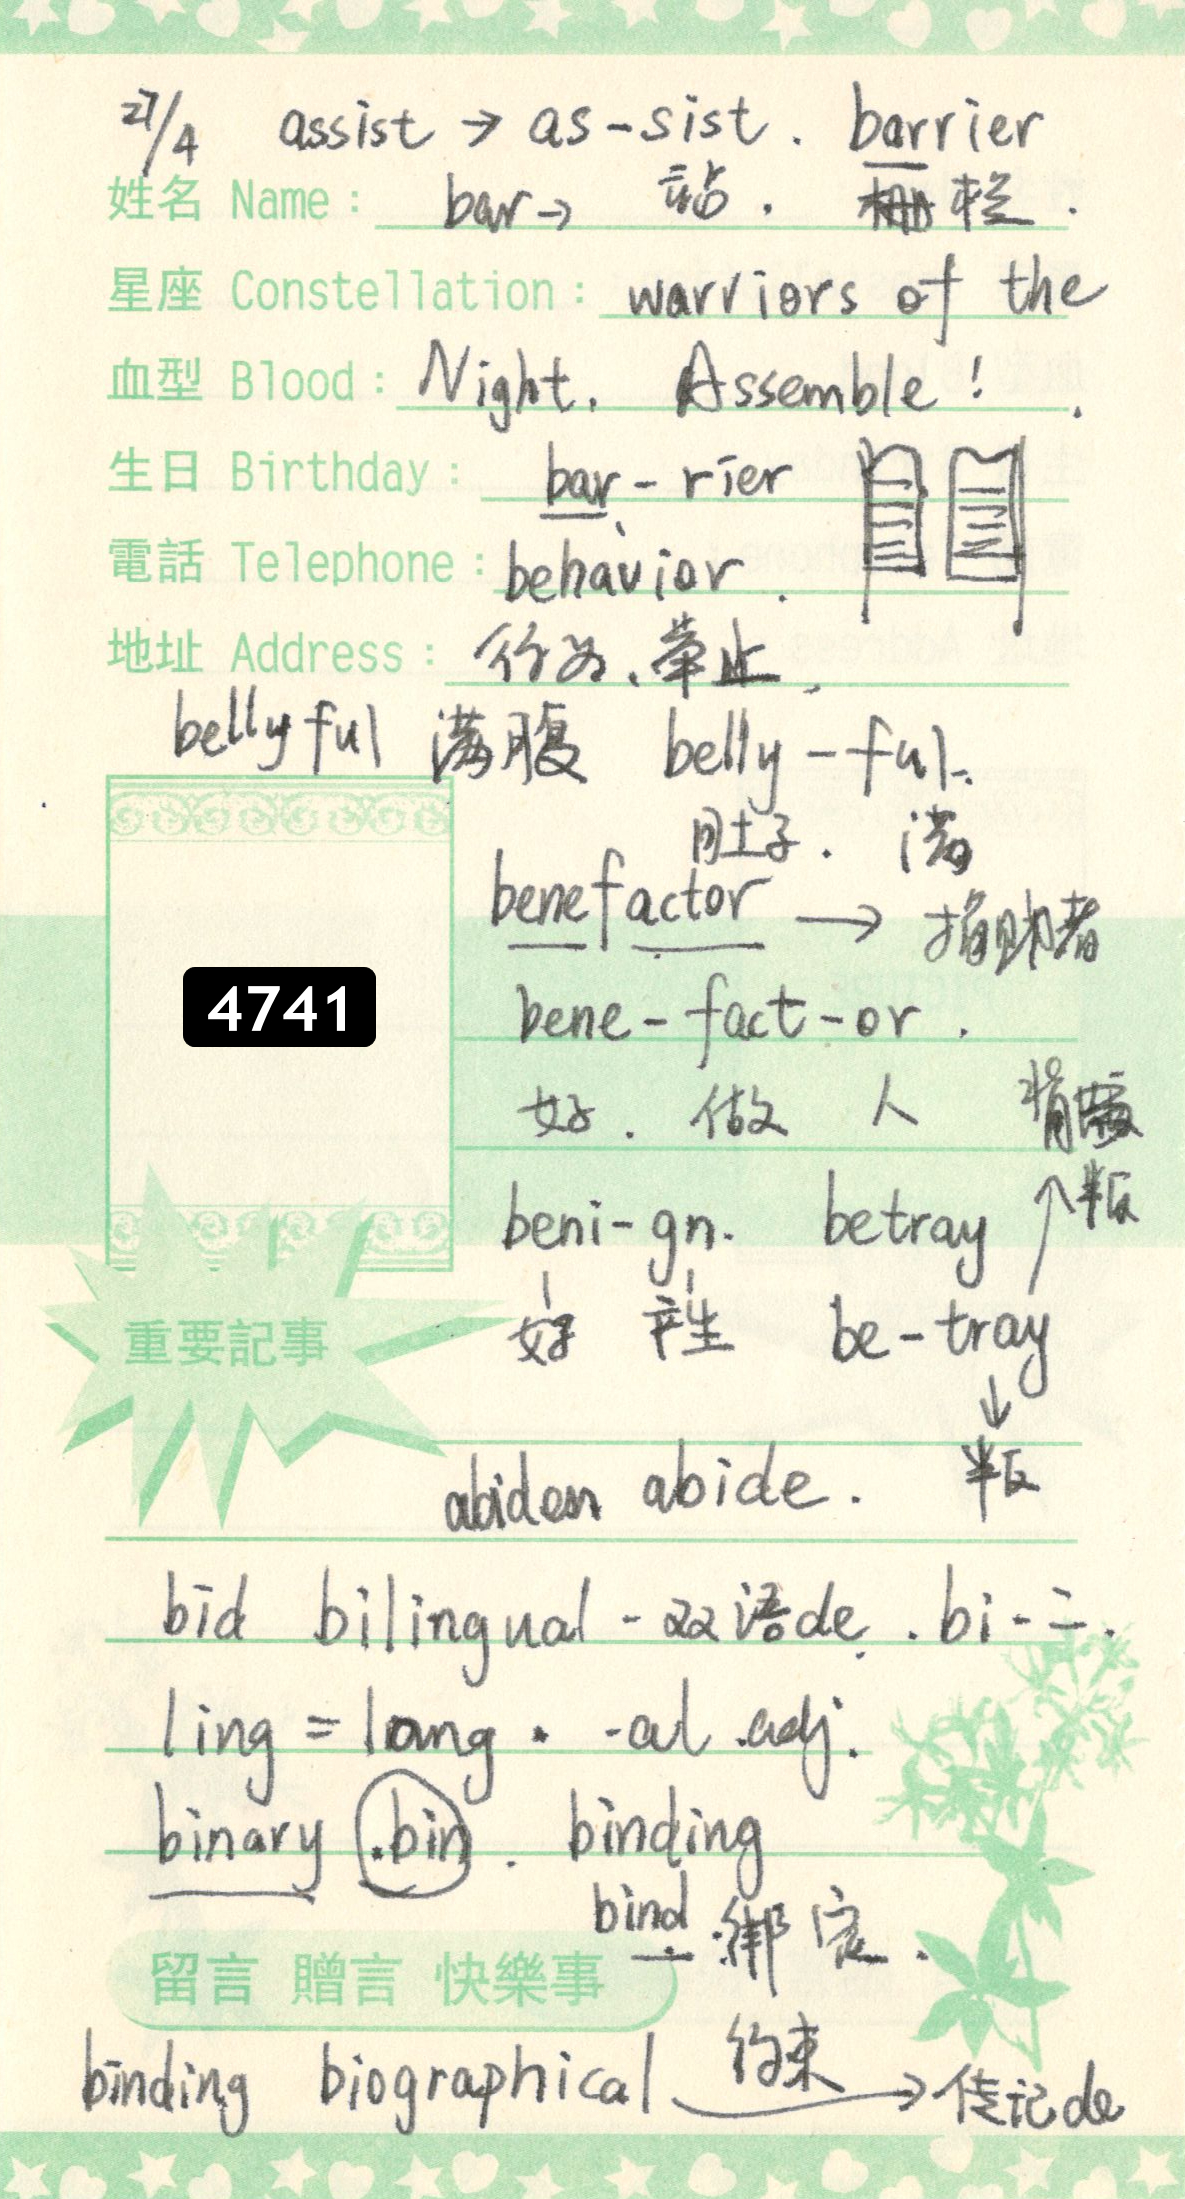 27/4 assist → as-sist. barrier
姓名 Name: bar→ 站. 栏.
星座 Constellation: warriors of the
血型 Blood: Night. Assemble!
生日 Birthday: bar-rier
電話 Telephone: behavior.
地址 Address: 行为、举止.
bellyful 满腹 belly-ful.
肚子. 满
benefactor → 捐助者
bene-fact-or.
4741
好. 做 人 背叛
beni-gn. betray
重要記事
好 be-tray
abide. 叛
bid bilingual - 双语de. bi-二.
ling = lang. -al .adj.
binary .bin. binding
bind 绑定.
留言 贈言 快樂事
binding biographical 约束 → 传记de